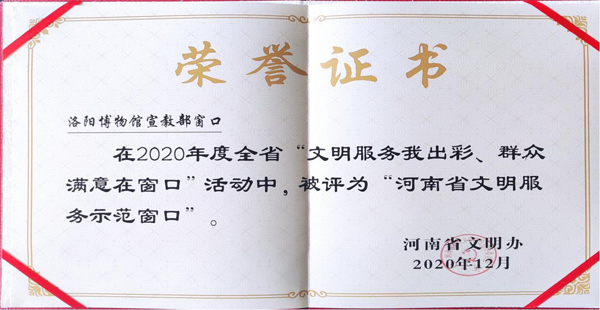 荣誉证书
洛阳博物馆宣教部窗口
在2020年度全省“文明服务我出彩、群众
满意在窗口”活动中，被评为“河南省文明服
务示范窗口”。
河南省文明办
2020年12月